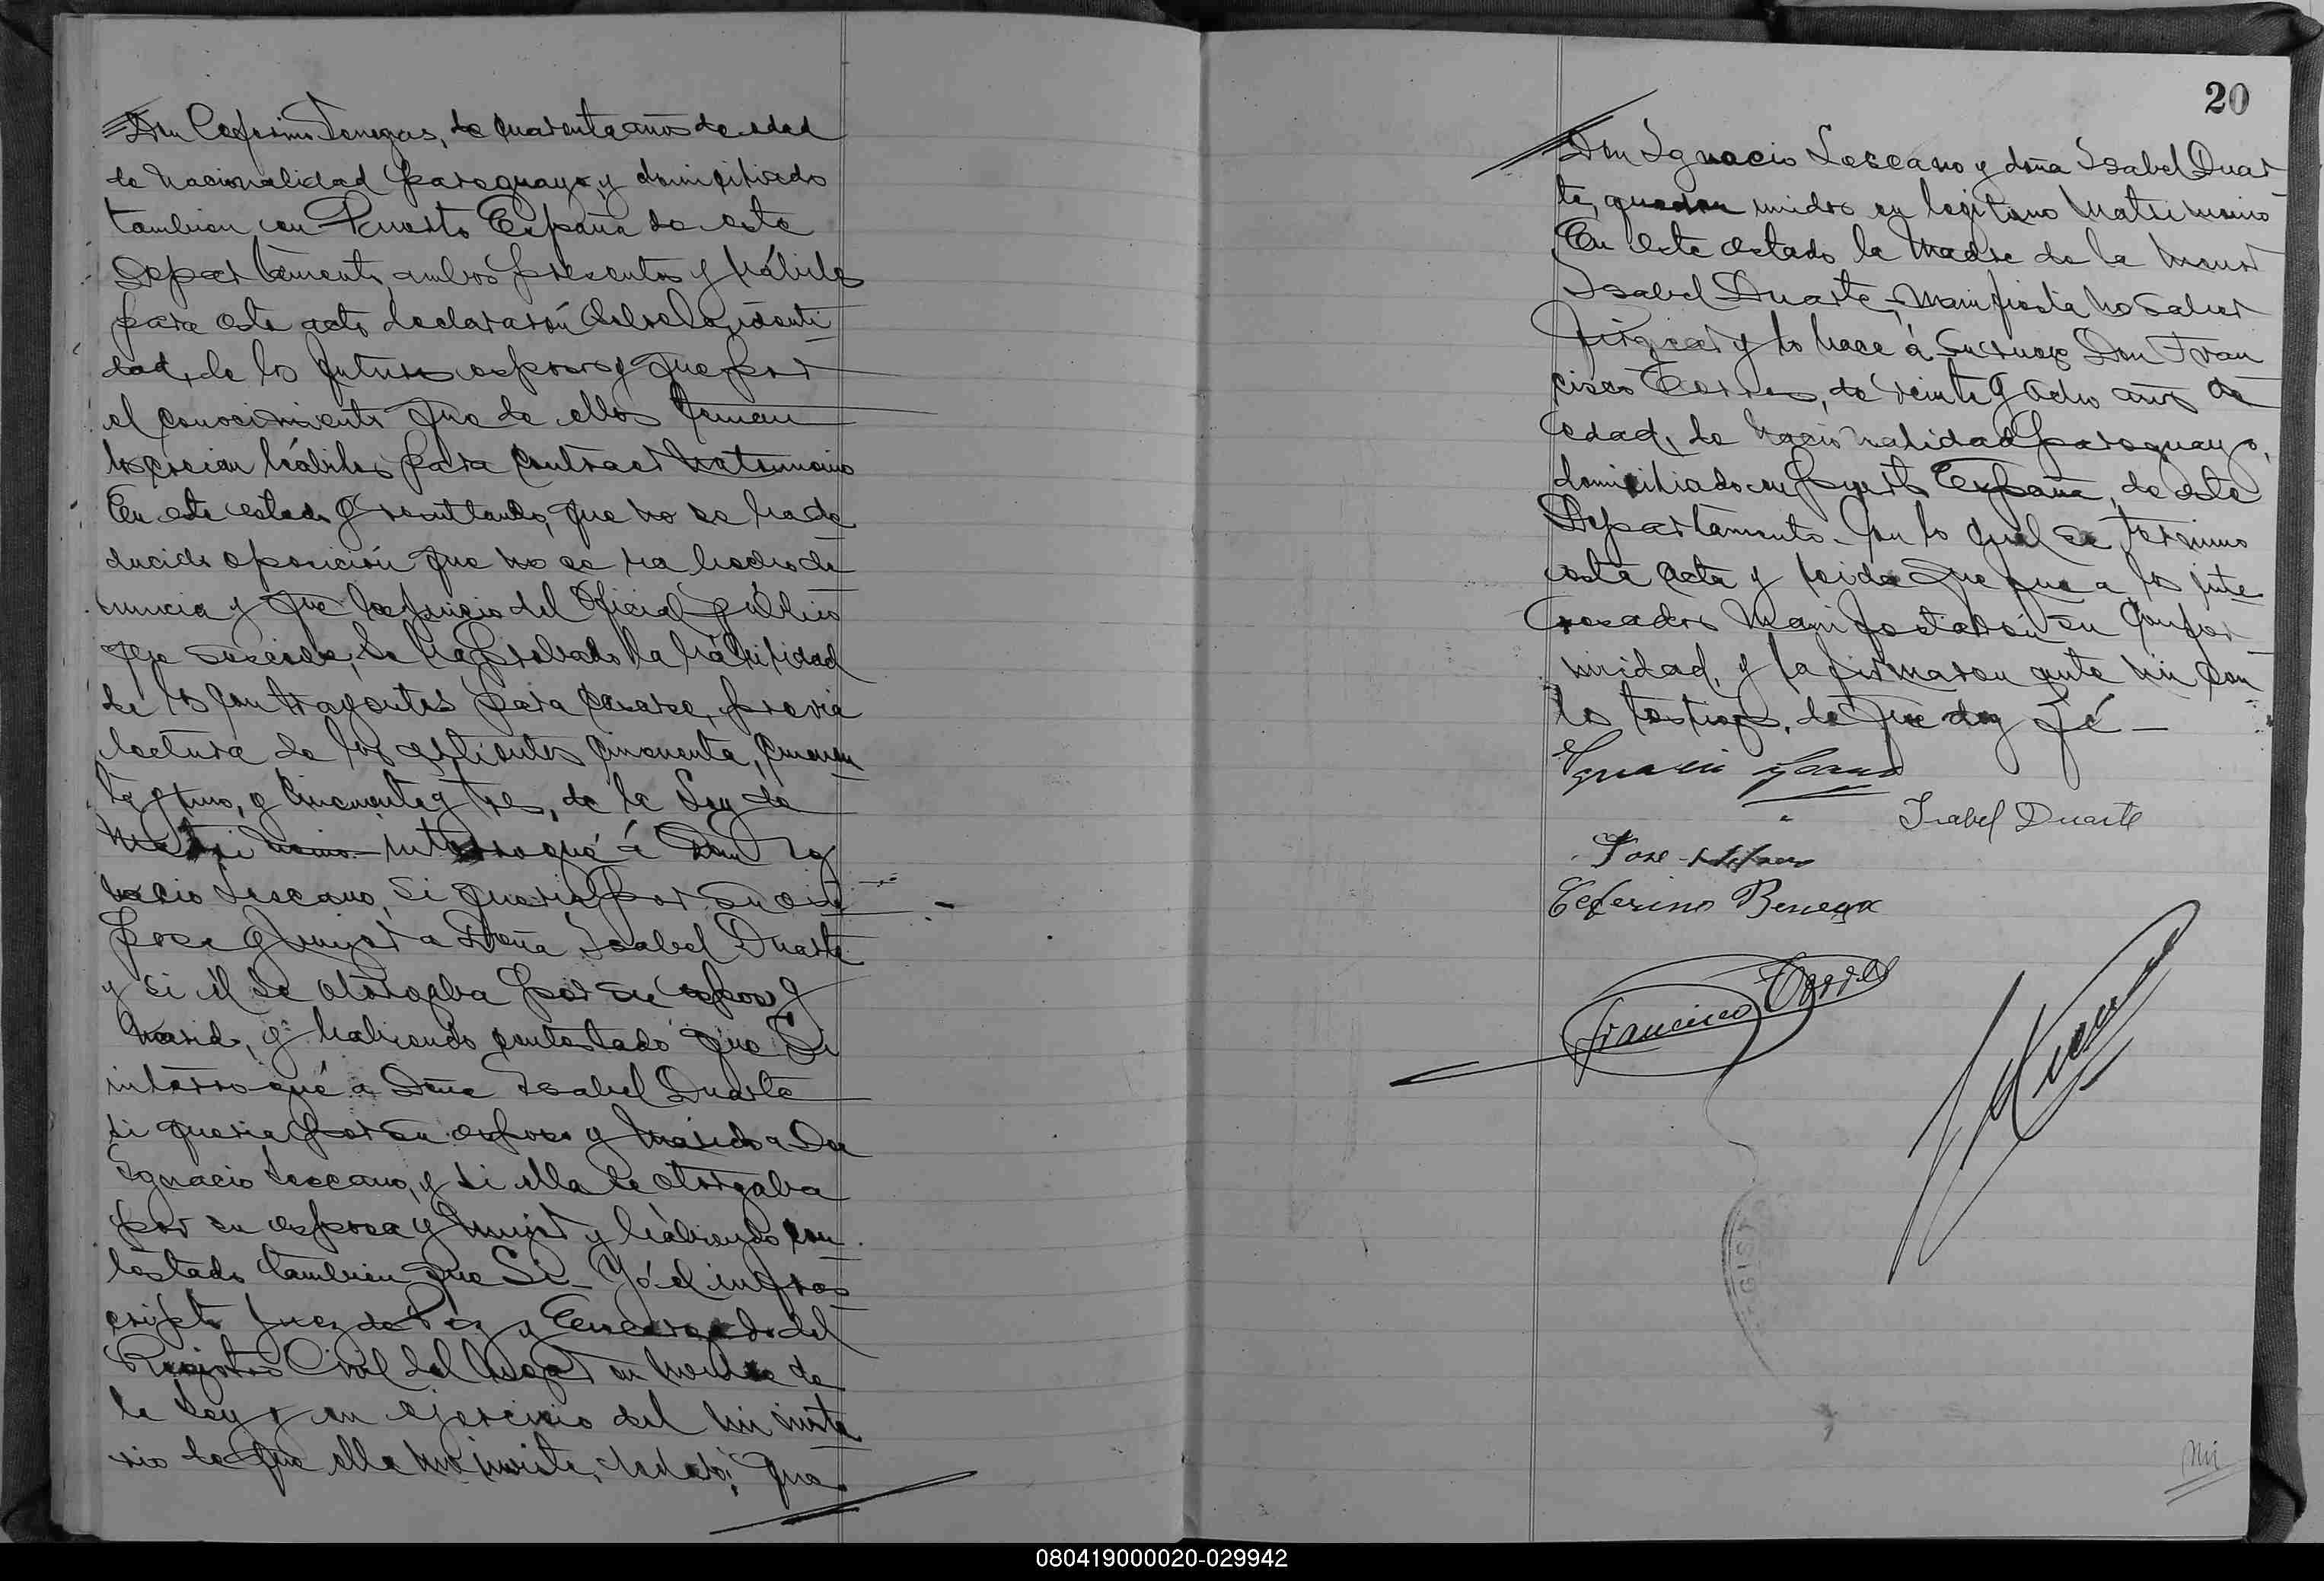 Don Ceferino Venegas, de cuarenta años de edad
de nacionalidad paraguaya, y domiciliado
tambien en Puerto España de este
Departamento, ambos presentes y hábiles
para este acto declararón sobre la identi
dad, de los futuros esposos y que por
el conocimiento que de ellos tenian
los creian hábiles para contraer matrimonio
En este estado y resultando, que no se ha de
ducido oposición que no se ha hecho de
nuncia y que a juicio del Oficial público
que suscribe, se ha probado la hábilidad
de los contrayentes para casarse, previa
lectura de los articulos cincuenta, cincuen
ta y uno, y cincuenta y tres, de la Ley de
Matrimonio interrogué á Don Ig
nacio Lescano, si queria por su es
posa y mujer a Doña Isabel Duarte
y si él se otorgaba por su esposo y
marido, y habiendo contestado que Si
interrogué a Doña Isabel Duarte
si queria por su esposo y marido a Don
Ignacio Lescano, y si ella se otorgaba
por su esposa y mujer y hábiendo con
testado tambien que Si_ Yó el infras
cripto Juez de Paz y Encargado del
Registro Civil del lugar en nombre de
la Ley y en ejercicio del ministe
rio de que ella me inviste, declaro: que
20
Don Ignacio Lescano y doña Isabel Duar
te, quedan unidos en legitimo matrimonio
En este estado la madre de la menor
Isabel Duarte, manifiesta no saber
firmar y lo hace á su ruego Don Fran
cisco Torres, de veinte y ocho años de
edad, de nacionalidad paraguayo,
domiciliado en puerto España, de este
Departamento. Con lo qual se termino
esta acta y leida que fue a los inte
resados manifestarón su confor
midad, y la firmaron ante mi con
los testigos, de que doy fé_
Ignacio Lescano
Isabel Duarte
Jose
Ceferino Benega
Francisco Torres
GIST
080419000020-029942